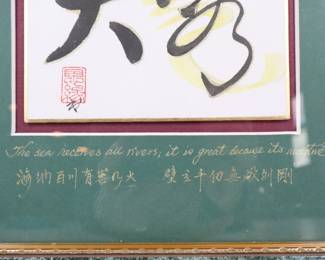 大 容
The sea receives all rivers, it is great because its receptive
海納百川有容乃大 壁立千仞無欲則剛